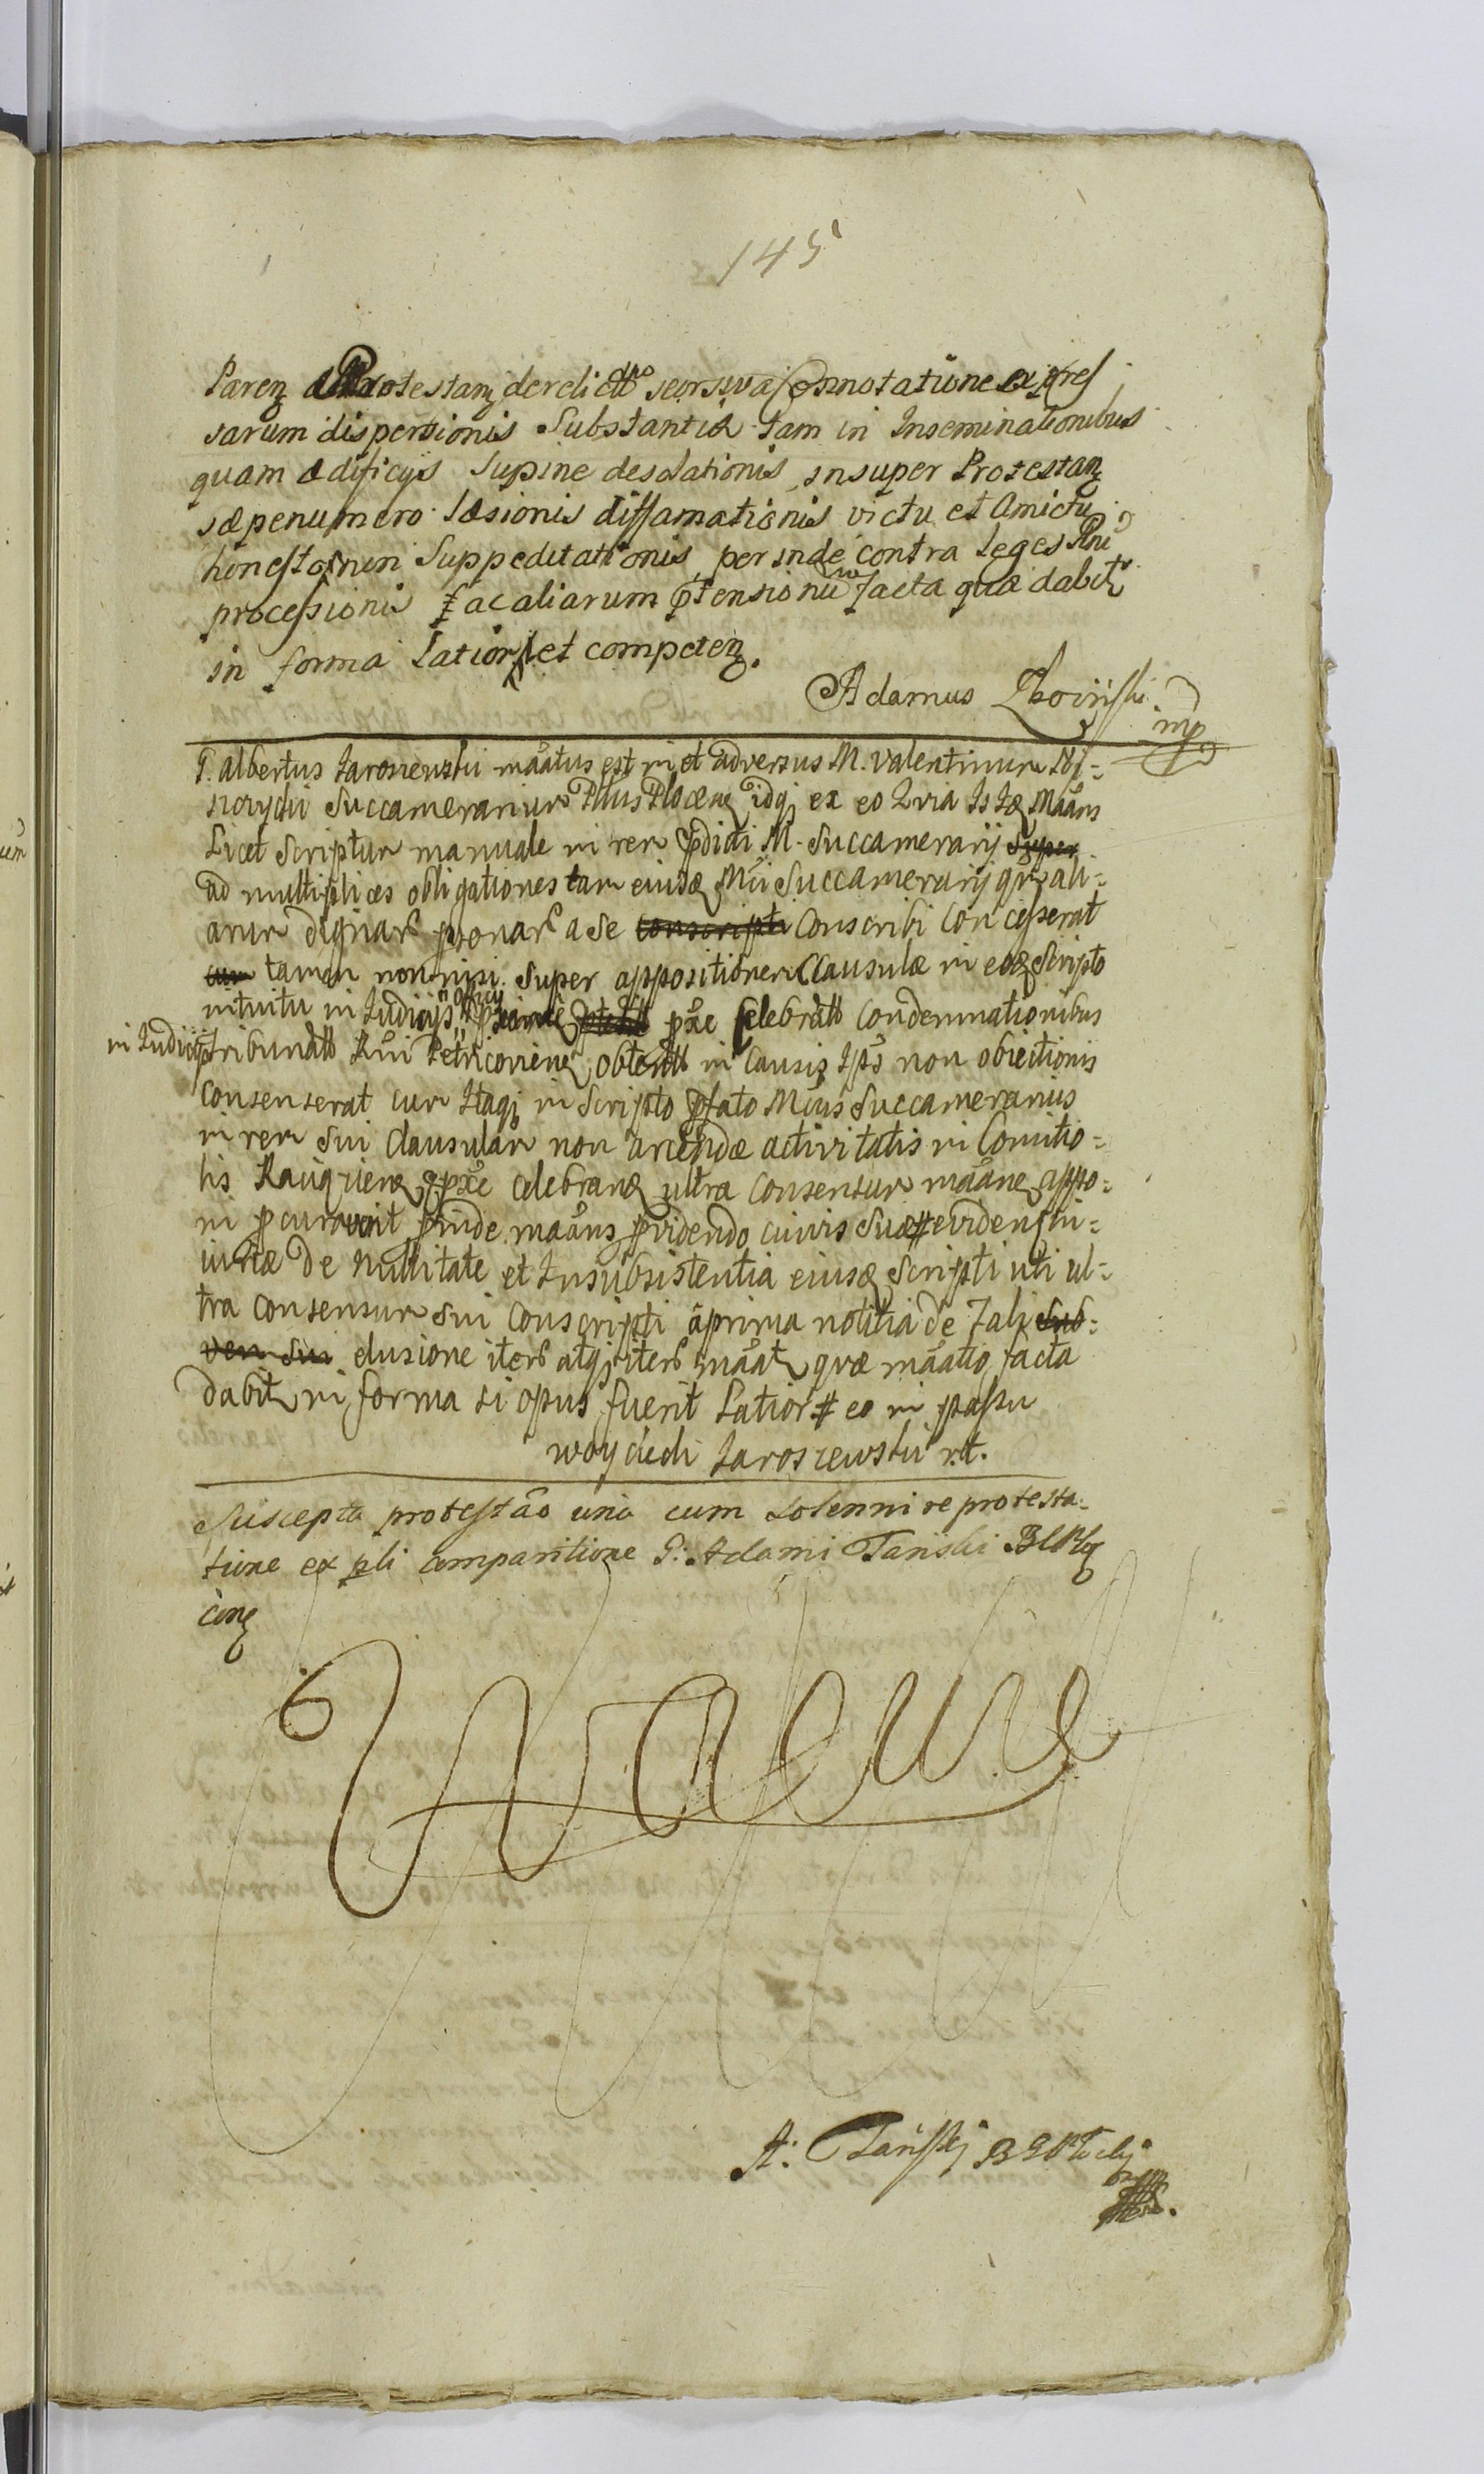 145
Paren Protestan derelicto seorsiva Connotatione expres
sarum dispersionis Substantiæ tam in Inseminationibus
quam ædificijs Supine desolationis, insuper Protestan
sæpenumero læsionis diffamationis victu et Amictu
honesto non Suppeditationis, perinde contra leges Rni
processionis facaliarum ptensionu facta quæ dabit
in forma latiori et competen.
Adamus mp
P. Albertus Jaroszewski mãatus est in et adversus M. Valentinum
Succamerarium Pltus Plocen idq; ex eo Quia Is Idẽ Mãans
Licet Scriptum manuale in rem pdicti M. Succamerarij Super
ad multiplices obligationes tam eiusdẽ Mci Succamerarij qm ali=
arum dignar psonar a se conscripti Conscribi Concesserat
cum tamen non nisi super appositionem Clausulæ in eodẽ Scripto
intuitu in Judicijs officij pxe celebratt Condemnationibus
in Judicijs tribunatt Rni Petricovien obtentt in Causis Ips non obiectionis
Consenserat cum Itaq; in Scripto pfato Mcus Succamerarius
in rem sui Clausulam non arcendæ activitatis in Comitio=
lis Raciążien pxe celebran ultra Consensum mãane appo=
ni pcuraverit pinde mãans pvidendo cuivis suæ # eviden in=
iuriæ de Nullitate et Insubsistentia eiusdẽ Scripti uti ul=
tra consensum sui Conscripti a prima notitia de Tali Sub=
ven sui elusione iter atq; iter mãat quæ mãatio facta
dabit in forma si opus fuerit latiori # eo in passu
woyciech Jaroszewski r.t.
Suscepta protestão una cum Solenni reprotesta=
tione ex pli comparitione G: Adami Tański
A: Tański